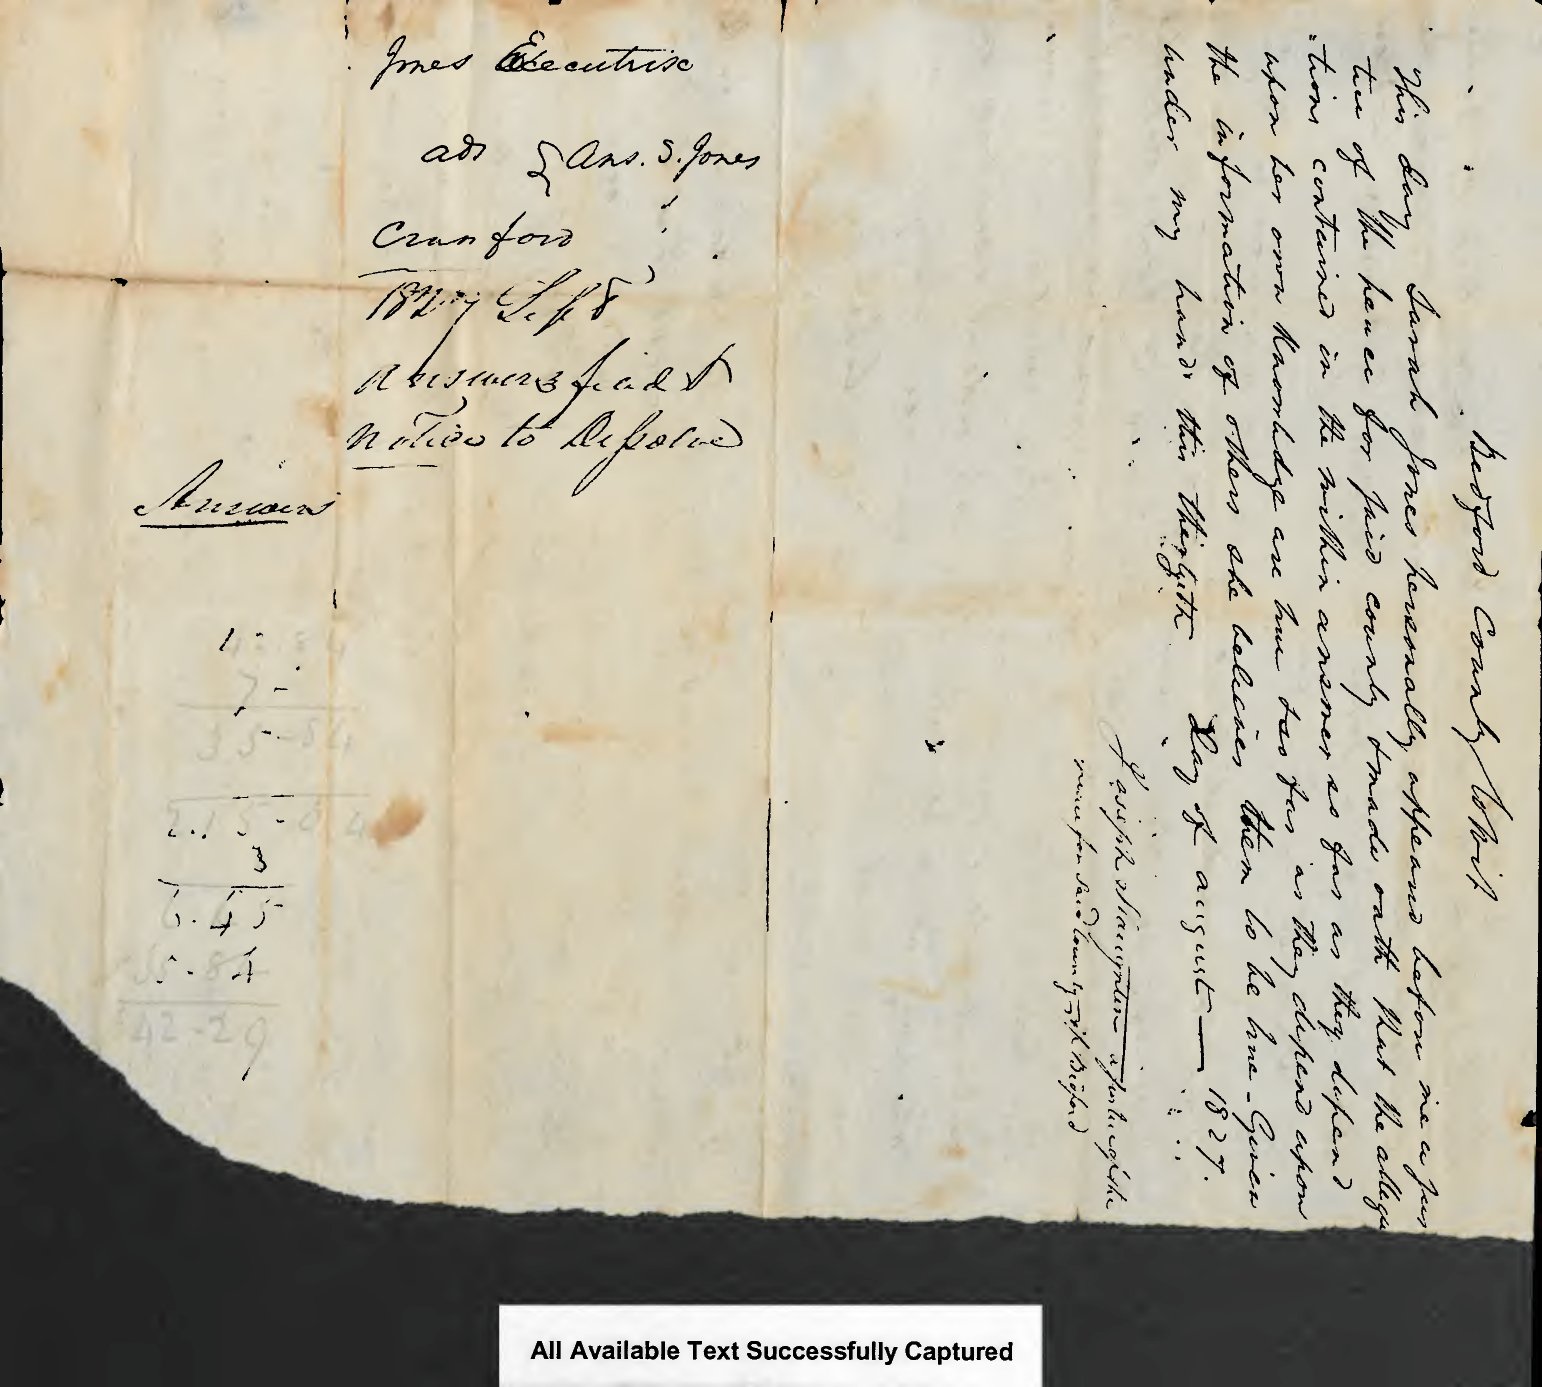 Jones Executrix
ads } Ans. S. Jones
Cranford
1827 Sept
Answers filed &
Notice to Dissolve
Answers
7 -
35-84
2.15-0 4
3
6.45
35.84
42-29
Bedford County to wit
This day Sarah Jones personally appeared before me a jus
tice of the peace for said county & made oath that the allega
-tions contained in the within answer so far as they depend
upon her own knowledge are true & so far as they depend upon
the information of others she believes them to be true - Given
under my hand this Day of august — 1827.
Joseph Slaughter a justice of the
peace for said County of Bedford
All Available Text Successfully Captured